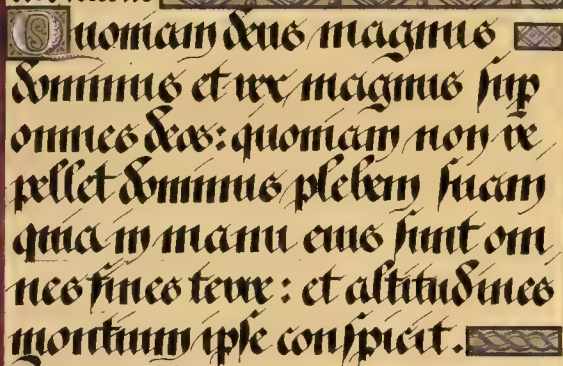 Quoniam deus magnus
dominus et rex magnus sup
omnes deos: quoniam non re
pellet dominus plebem suam
quia in manu eius sunt om
nes fines terre: et altitudines
montium ipse conspicit.